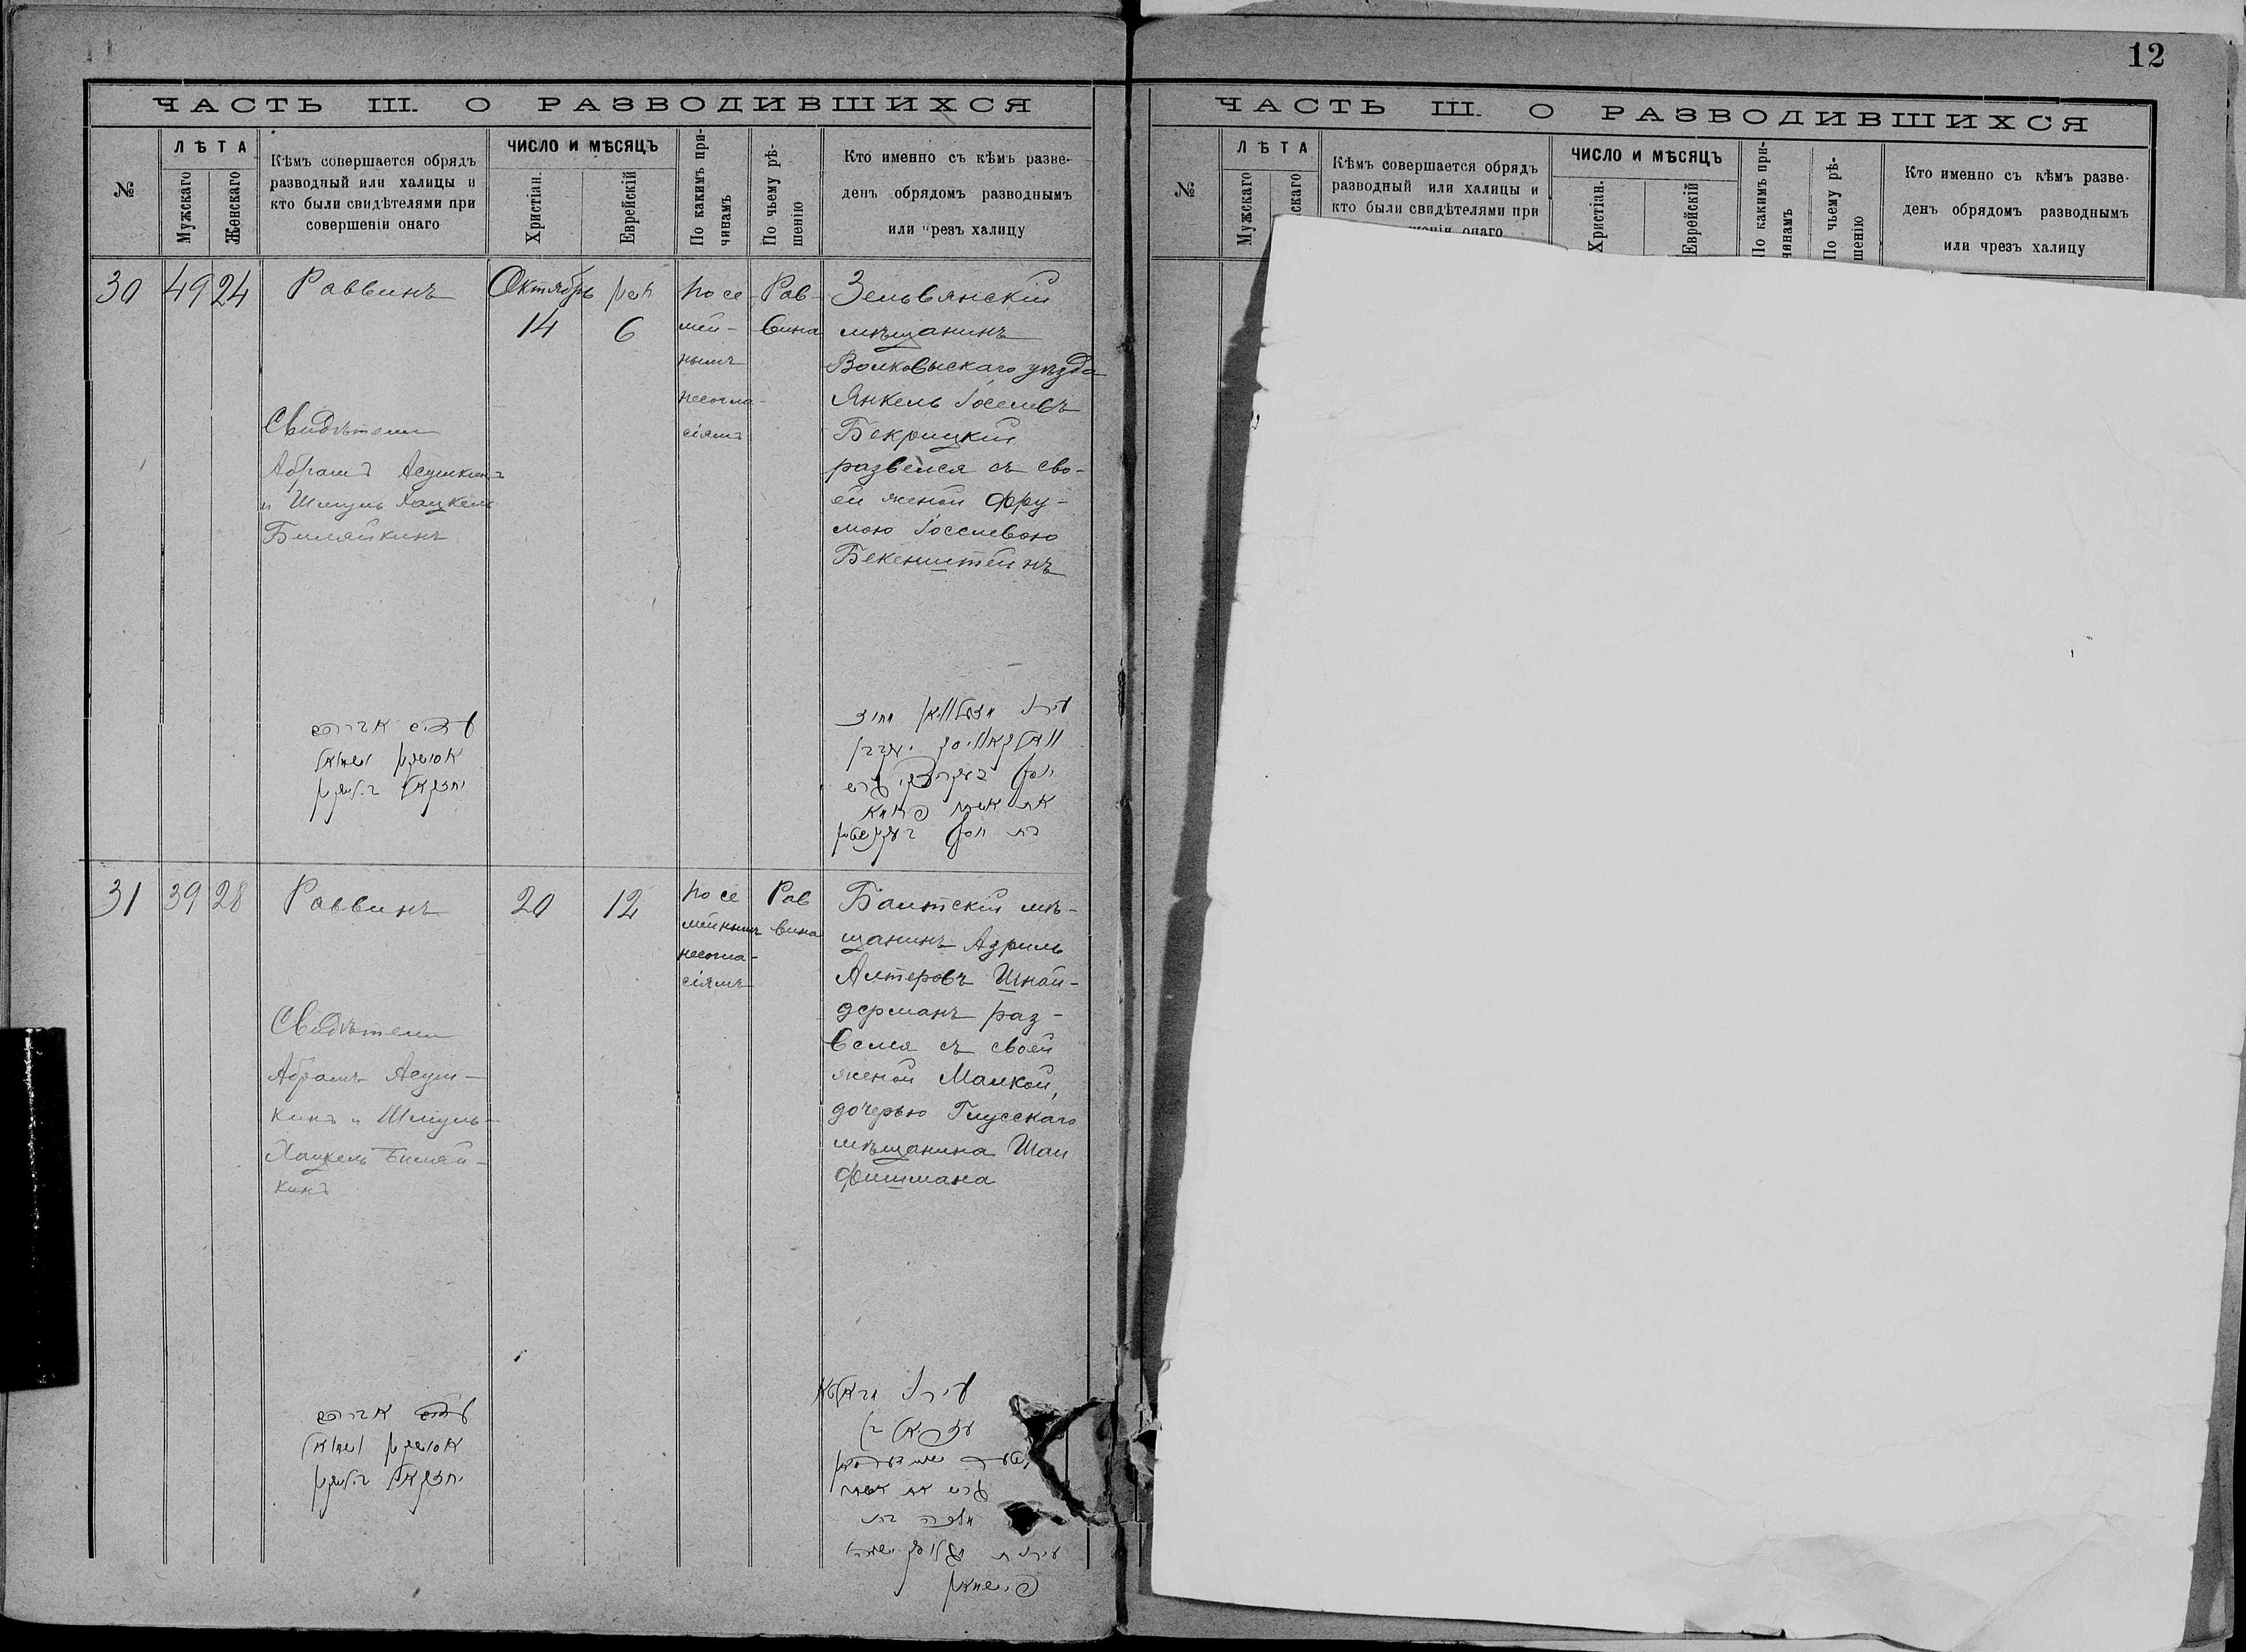 ЧАСТЬ III. О РАЗВОДИВШИХСЯ
№
ЛѢТА
Мужскаго
Женскаго
Кѣмъ совершается обрядъ
разводный или халицы и
кто были свидѣтелями при
совершеніи онаго
ЧИСЛО И МѢСЯЦЪ
Христіан.
Еврейскій
По какимъ при-
чинамъ
По чьему рѣ-
шенію
Кто именно съ кѣмъ разве-
денъ обрядомъ разводнымъ
или чрезъ халицу
30
49
24
Раввинъ
Свидѣтели
Абрамъ Асушкинъ
и Шмуль Хацкель
Биляйкинъ
עדים אברהם
יחזקאל
Октябрь
14
חשון
6
По се-
мей-
нымъ
несогла-
сіямъ
Рав-
вина
Зельвянскій
мѣщанинъ
Волковыскаго уѣзда
Янкель Іоселевъ
Бекрицкій
развелся съ сво-
ей женой Фру-
мою Іоселевою
Бекенштейнъ
יעקב
את אשתו פרומא
בת יוסף
31
39
28
Раввинъ
Свидѣтели
Абрамъ Асуш-
кинъ и Шмуль-
Хацкель Биляй-
кинъ
עדים אברהם
יחזקאל
20
12
По се
мейнымъ
несогла-
сіямъ
Рав
вина
Балтскій мѣ-
щанинъ Азриль
Алтеровъ Шнай-
дерманъ раз-
велся съ своей
женой Малкой,
дочерью Глусскаго
мѣщанина Шаи
Фишмана
גרש את אשתו
פישמאן
12
ЧАСТЬ III. О РАЗВОДИВШИХСЯ
№
ЛѢТА
Мужскаго
скаго
Кѣмъ совершается обрядъ
разводный или халицы и
кто были свидѣтелями при
онаго
ЧИСЛО И МѢСЯЦЪ
Христіан.
Еврейскій
По какимъ при-
чинамъ
По чьему рѣ-
шенію
Кто именно съ кѣмъ разве-
денъ обрядомъ разводнымъ
или чрезъ халицу